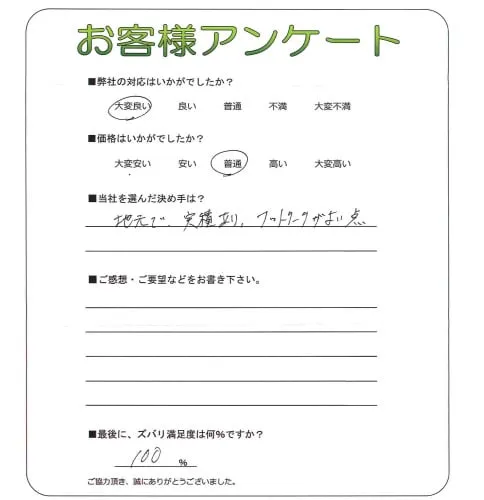 お客様アンケート
■弊社の対応はいかがでしたか？
大変良い 良い 普通 不満 大変不満
■価格はいかがでしたか？
大変安い 安い 普通 高い 大変高い
■当社を選んだ決め手は？
地元で、実積有り、フットワークがよい点
■ご感想・ご要望などをお書き下さい。
■最後に、ズバリ満足度は何%ですか？
100 %
ご協力頂き、誠にありがとうございました。